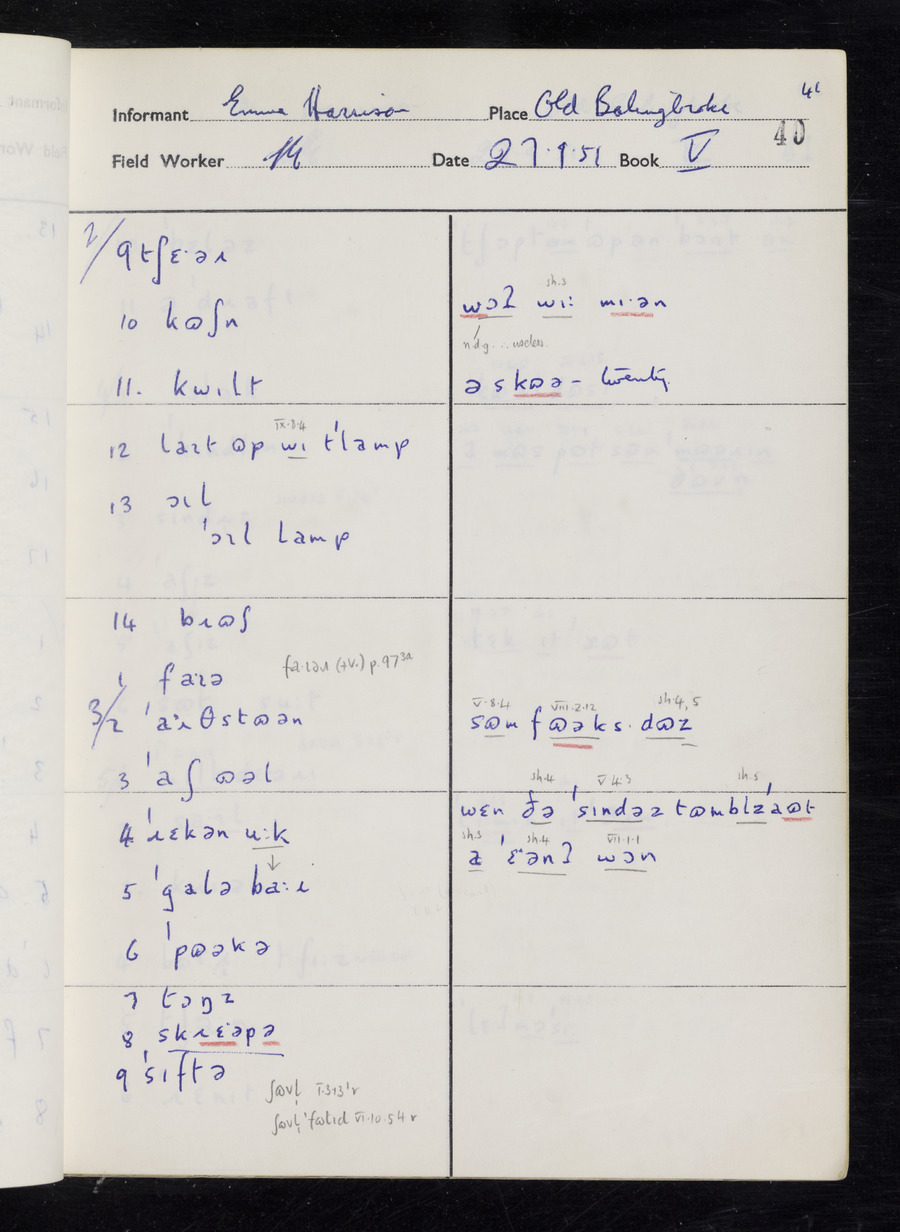 Informant Emma Harrison Place Old Bolingbroke 41
40
Field Worker Date 27.9.51 Book V
2/ 9 tʃɛ·əɹ
10 kɷʃn
11. kwɪlt
12 laɪt ɷp wɪ t'lamp
IX·8·4
13 ɔɪl
'ɔɪl lamp
14 bɹɷʃ
3/ 1 faɪə
fa·ɪəɹ (+V.) p.97
2 'aːɹθstɷən
3 'aʃɷəl
4 'ɹɛkən u:k
5 'galə ba:ɹ
6 'pɷəkə
7 tɔŋz
8 skɹɛ·əpə
9 'sɪftə
ʃɷvl I·3·13'r
ʃɷvl 'fɷlɪd VI·10·54r
sh.3
wɔʔ wi: mɪ·ən
ndg ... useless.
ə skɷə – twenty.
V·8·4 VIII·2·12 sh·4, 5
sɷm fɷəks· dɷz
sh·4 V·4·3 sh·5
wɛn ðə 'sɪndəz tɷmblz 'aɷt
sh.3 sh·4 VII·1·1
a 'ɛ·ənʔ wɔn